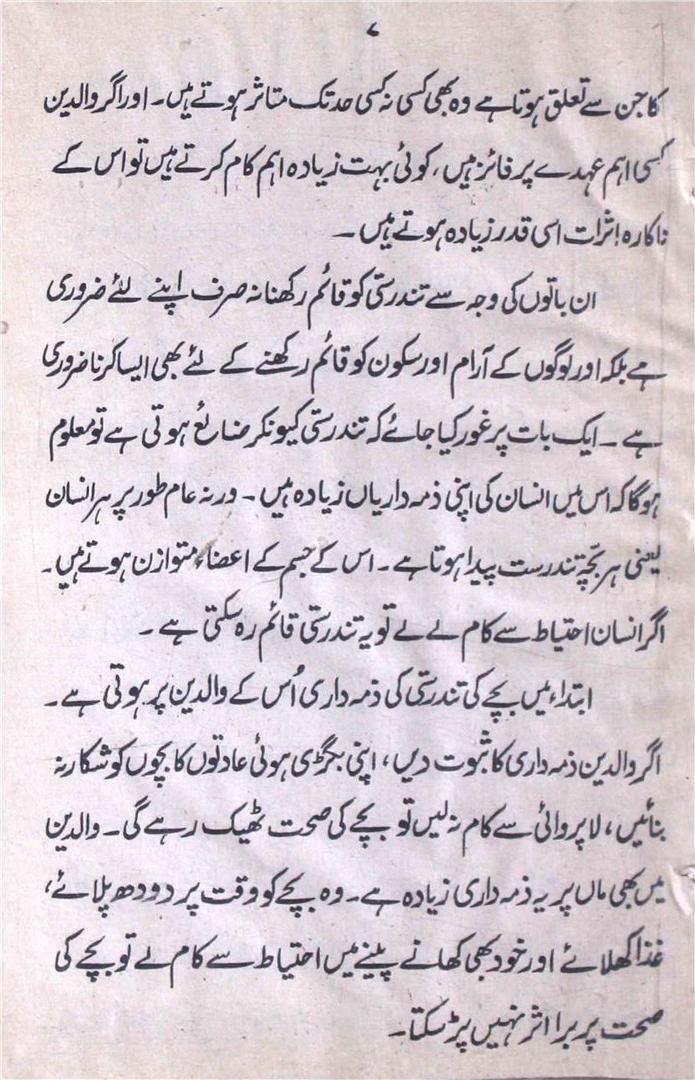 ۷
کا جن سے تعلق ہوتا ہے وہ بھی کسی نہ کسی حد تک متاثر ہوتے ہیں۔ اور اگر والدین
کسی اہم عہدے پر فائز ہیں، کوئی بہت زیادہ اہم کام کرتے ہیں تو اس کے
ناکارہ اثرات اسی قدر زیادہ ہوتے ہیں۔
ان باتوں کی وجہ سے تندرستی کو قائم رکھنا نہ صرف اپنے لئے ضروری
ہے بلکہ اور لوگوں کے آرام اور سکون کو قائم رکھنے کے لئے بھی ایسا کرنا ضروری
ہے۔ ایک بات پر غور کیا جائے کہ تندرستی کیونکر ضائع ہوتی ہے تو معلوم
ہوگا کہ اس میں انسان کی اپنی ذمہ داریاں زیادہ ہیں۔ ورنہ عام طور پر ہر انسان
یعنی ہر بچّہ تندرست پیدا ہوتا ہے۔ اس کے جسم کے اعضاء متوازن ہوتے ہیں۔
اگر انسان احتیاط سے کام لے لے تو یہ تندرستی قائم رہ سکتی ہے۔
ابتداء میں بچے کی تندرستی کی ذمہ داری اُس کے والدین پر ہوتی ہے۔
اگر والدین ذمہ داری کا ثبوت دیں، اپنی بگڑی ہوئی عادتوں کا بچوں کو شکار نہ
بنائیں، لاپروائی سے کام نہ لیں تو بچے کی صحت ٹھیک رہے گی۔ والدین
میں بھی ماں پر یہ ذمہ داری زیادہ ہے۔ وہ بچے کو وقت پر دودھ پلائے،
غذا کھلائے اور خود بھی کھانے پینے میں احتیاط سے کام لے تو بچے کی
صحت پر برا اثر نہیں پڑ سکتا۔